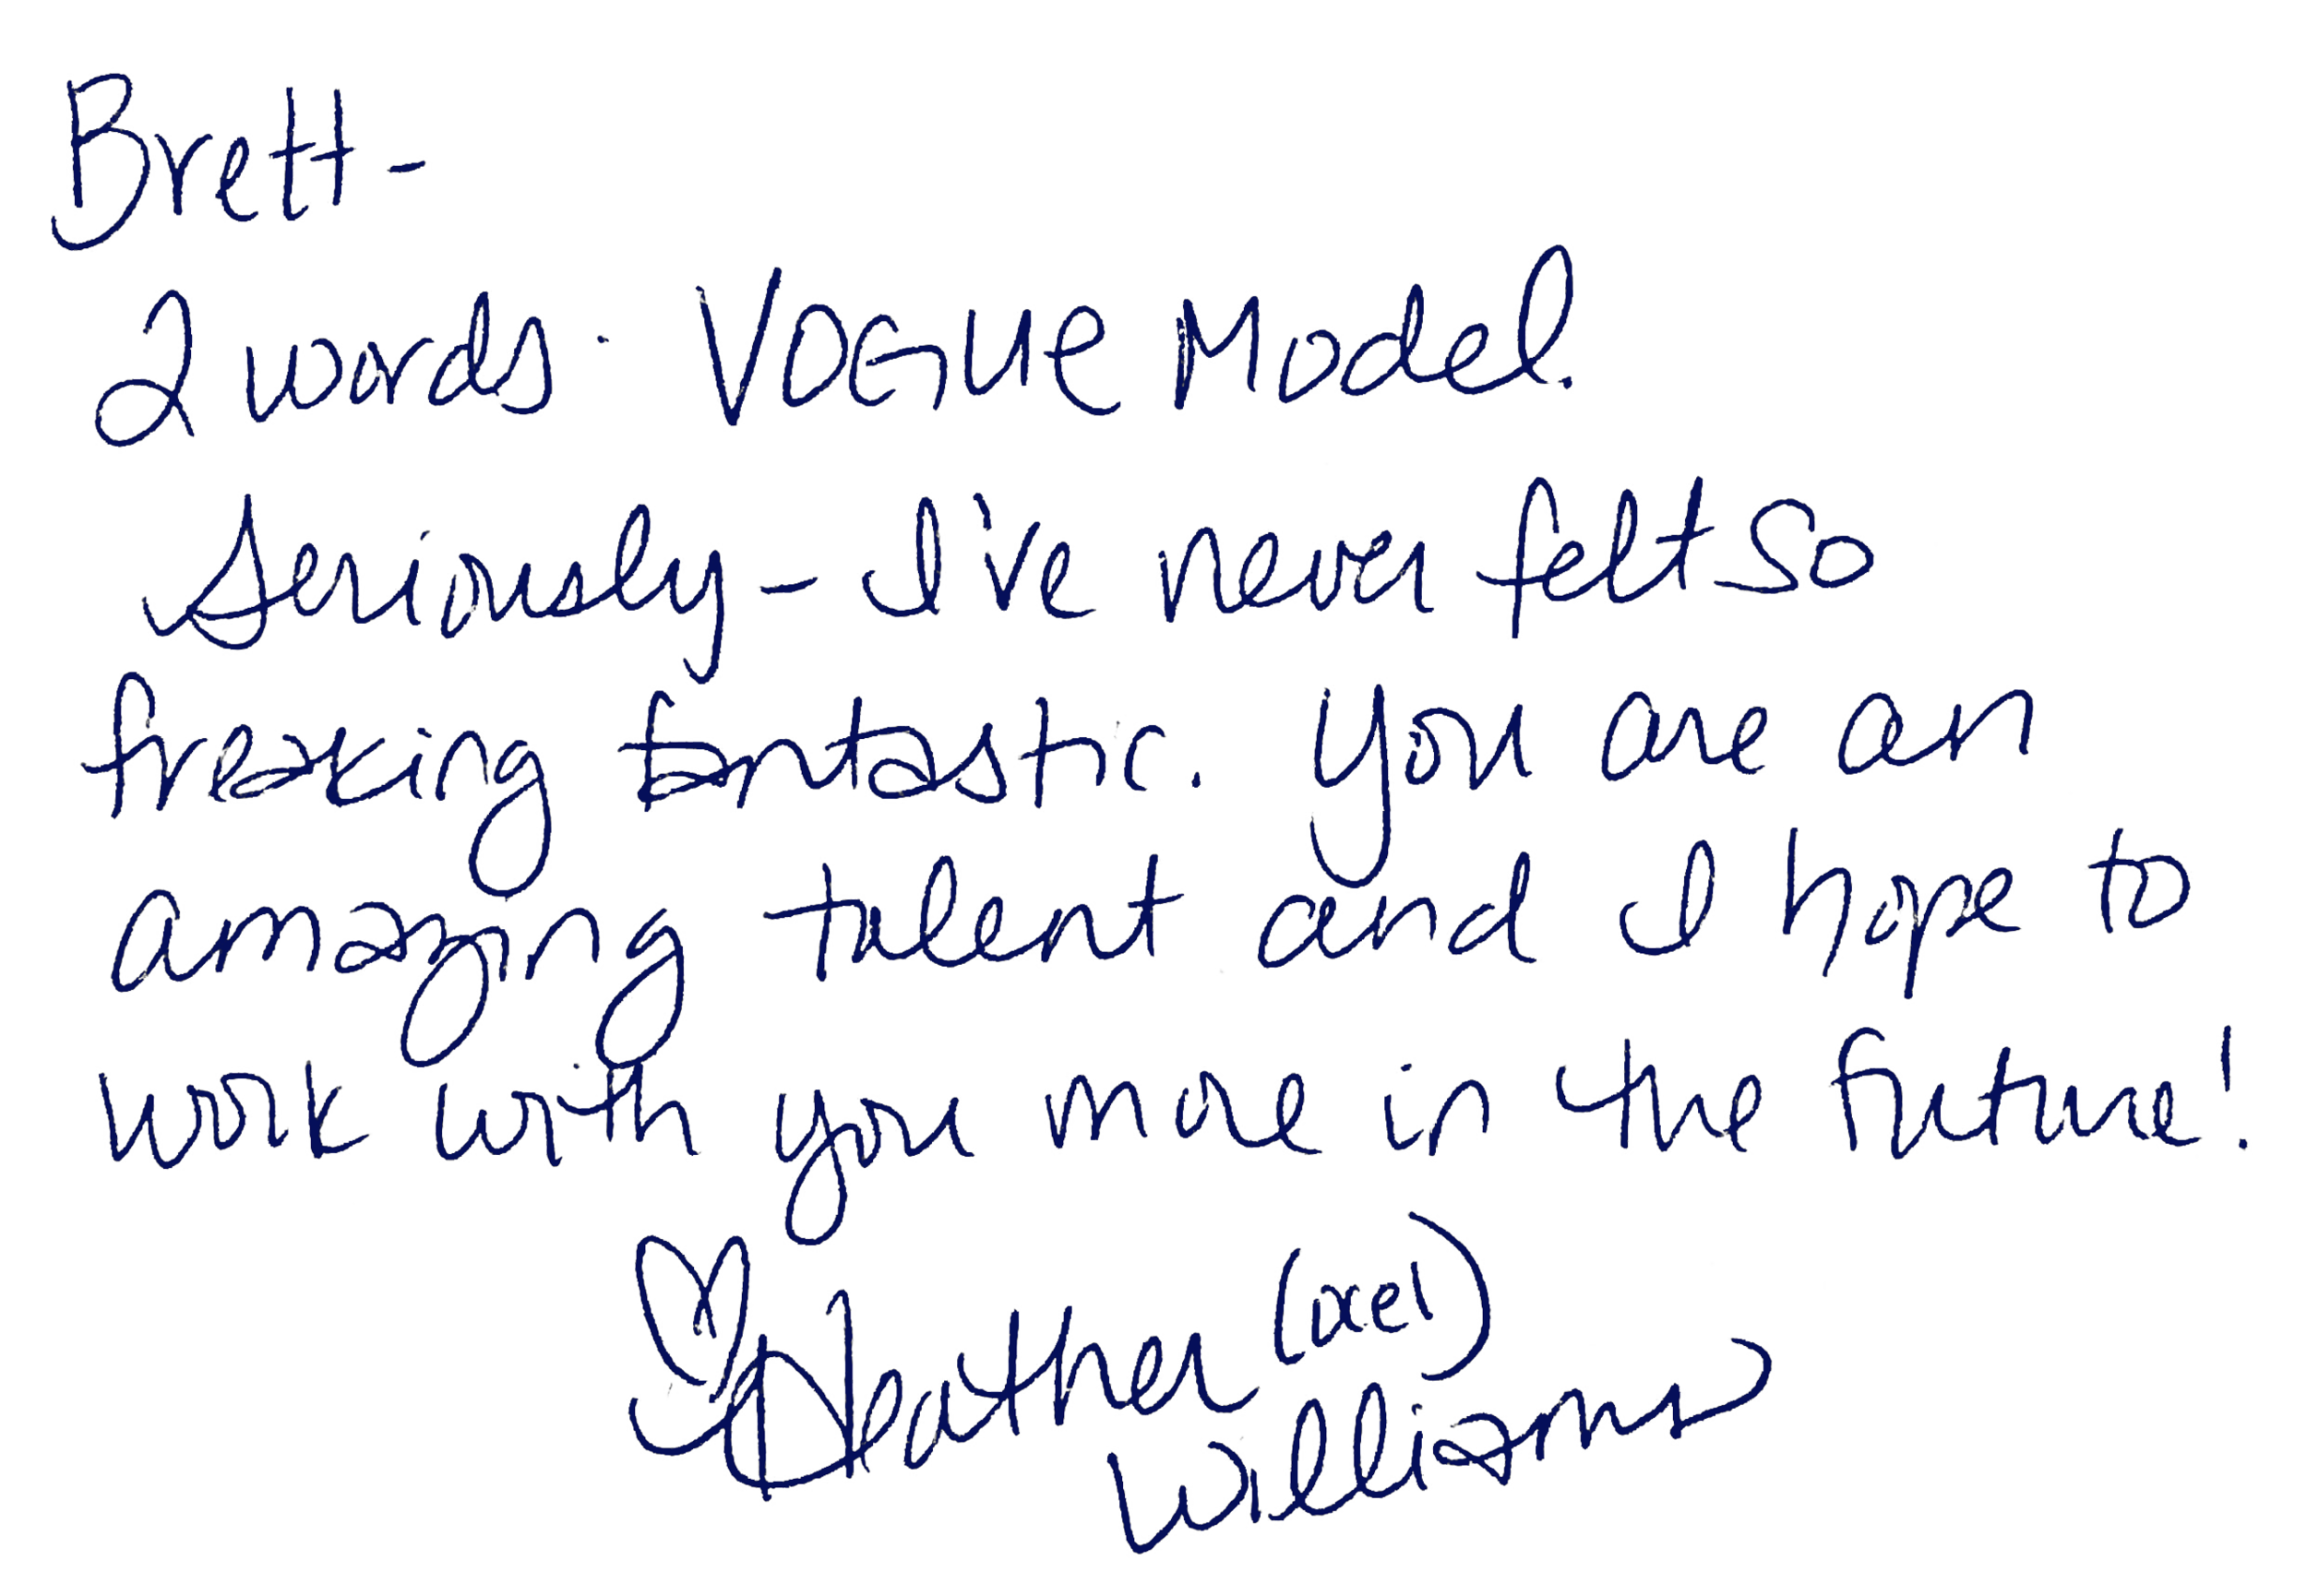 Brett-
2 words: VOGUE Model.
Seriously - I've never felt so
freaking fantastic. You are an
amazing talent and I hope to
work with you more in the future!
♡ Heather (Axel)
Williams